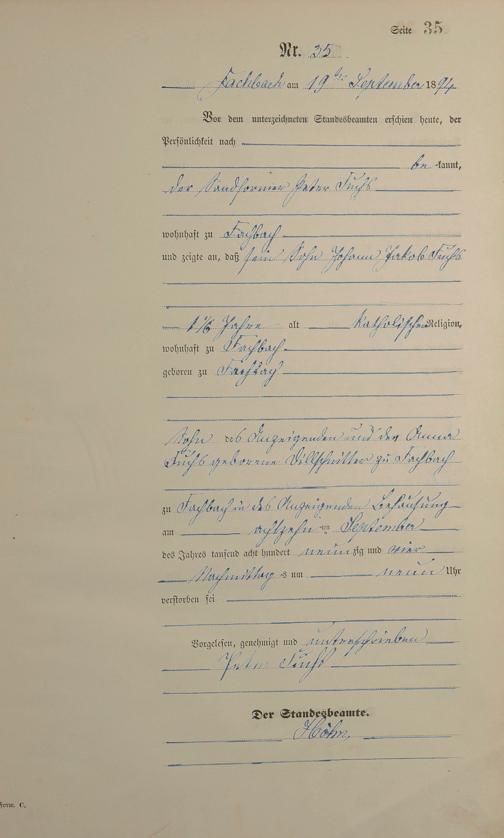 Seite 35
Nr. 35
Fachbach am 19ten September 1894
Vor dem unterzeichneten Standesbeamten erschien heute, der
Persönlichkeit nach
be kannt,
der Sandformer Peter Fuchs
wohnhaft zu Fachbach
und zeigte an, daß sein Sohn Johann Jakob Fuchs
1 1/6 Jahre alt katholischer Religion,
wohnhaft zu Fachbach
geboren zu Fachbach
Sohn des Anzeigenden und der Anna
Fuchs geborene zu Fachbach
zu Fachbach in des Anzeigenden Behausung
am achtzehnten September
des Jahres tausend acht hundert neunzig und vier
Nachmittags um neun Uhr
verstorben sei
Vorgelesen, genehmigt und unterschrieben
Peter Fuchs
Der Standesbeamte.
Höhn.
Form. C.